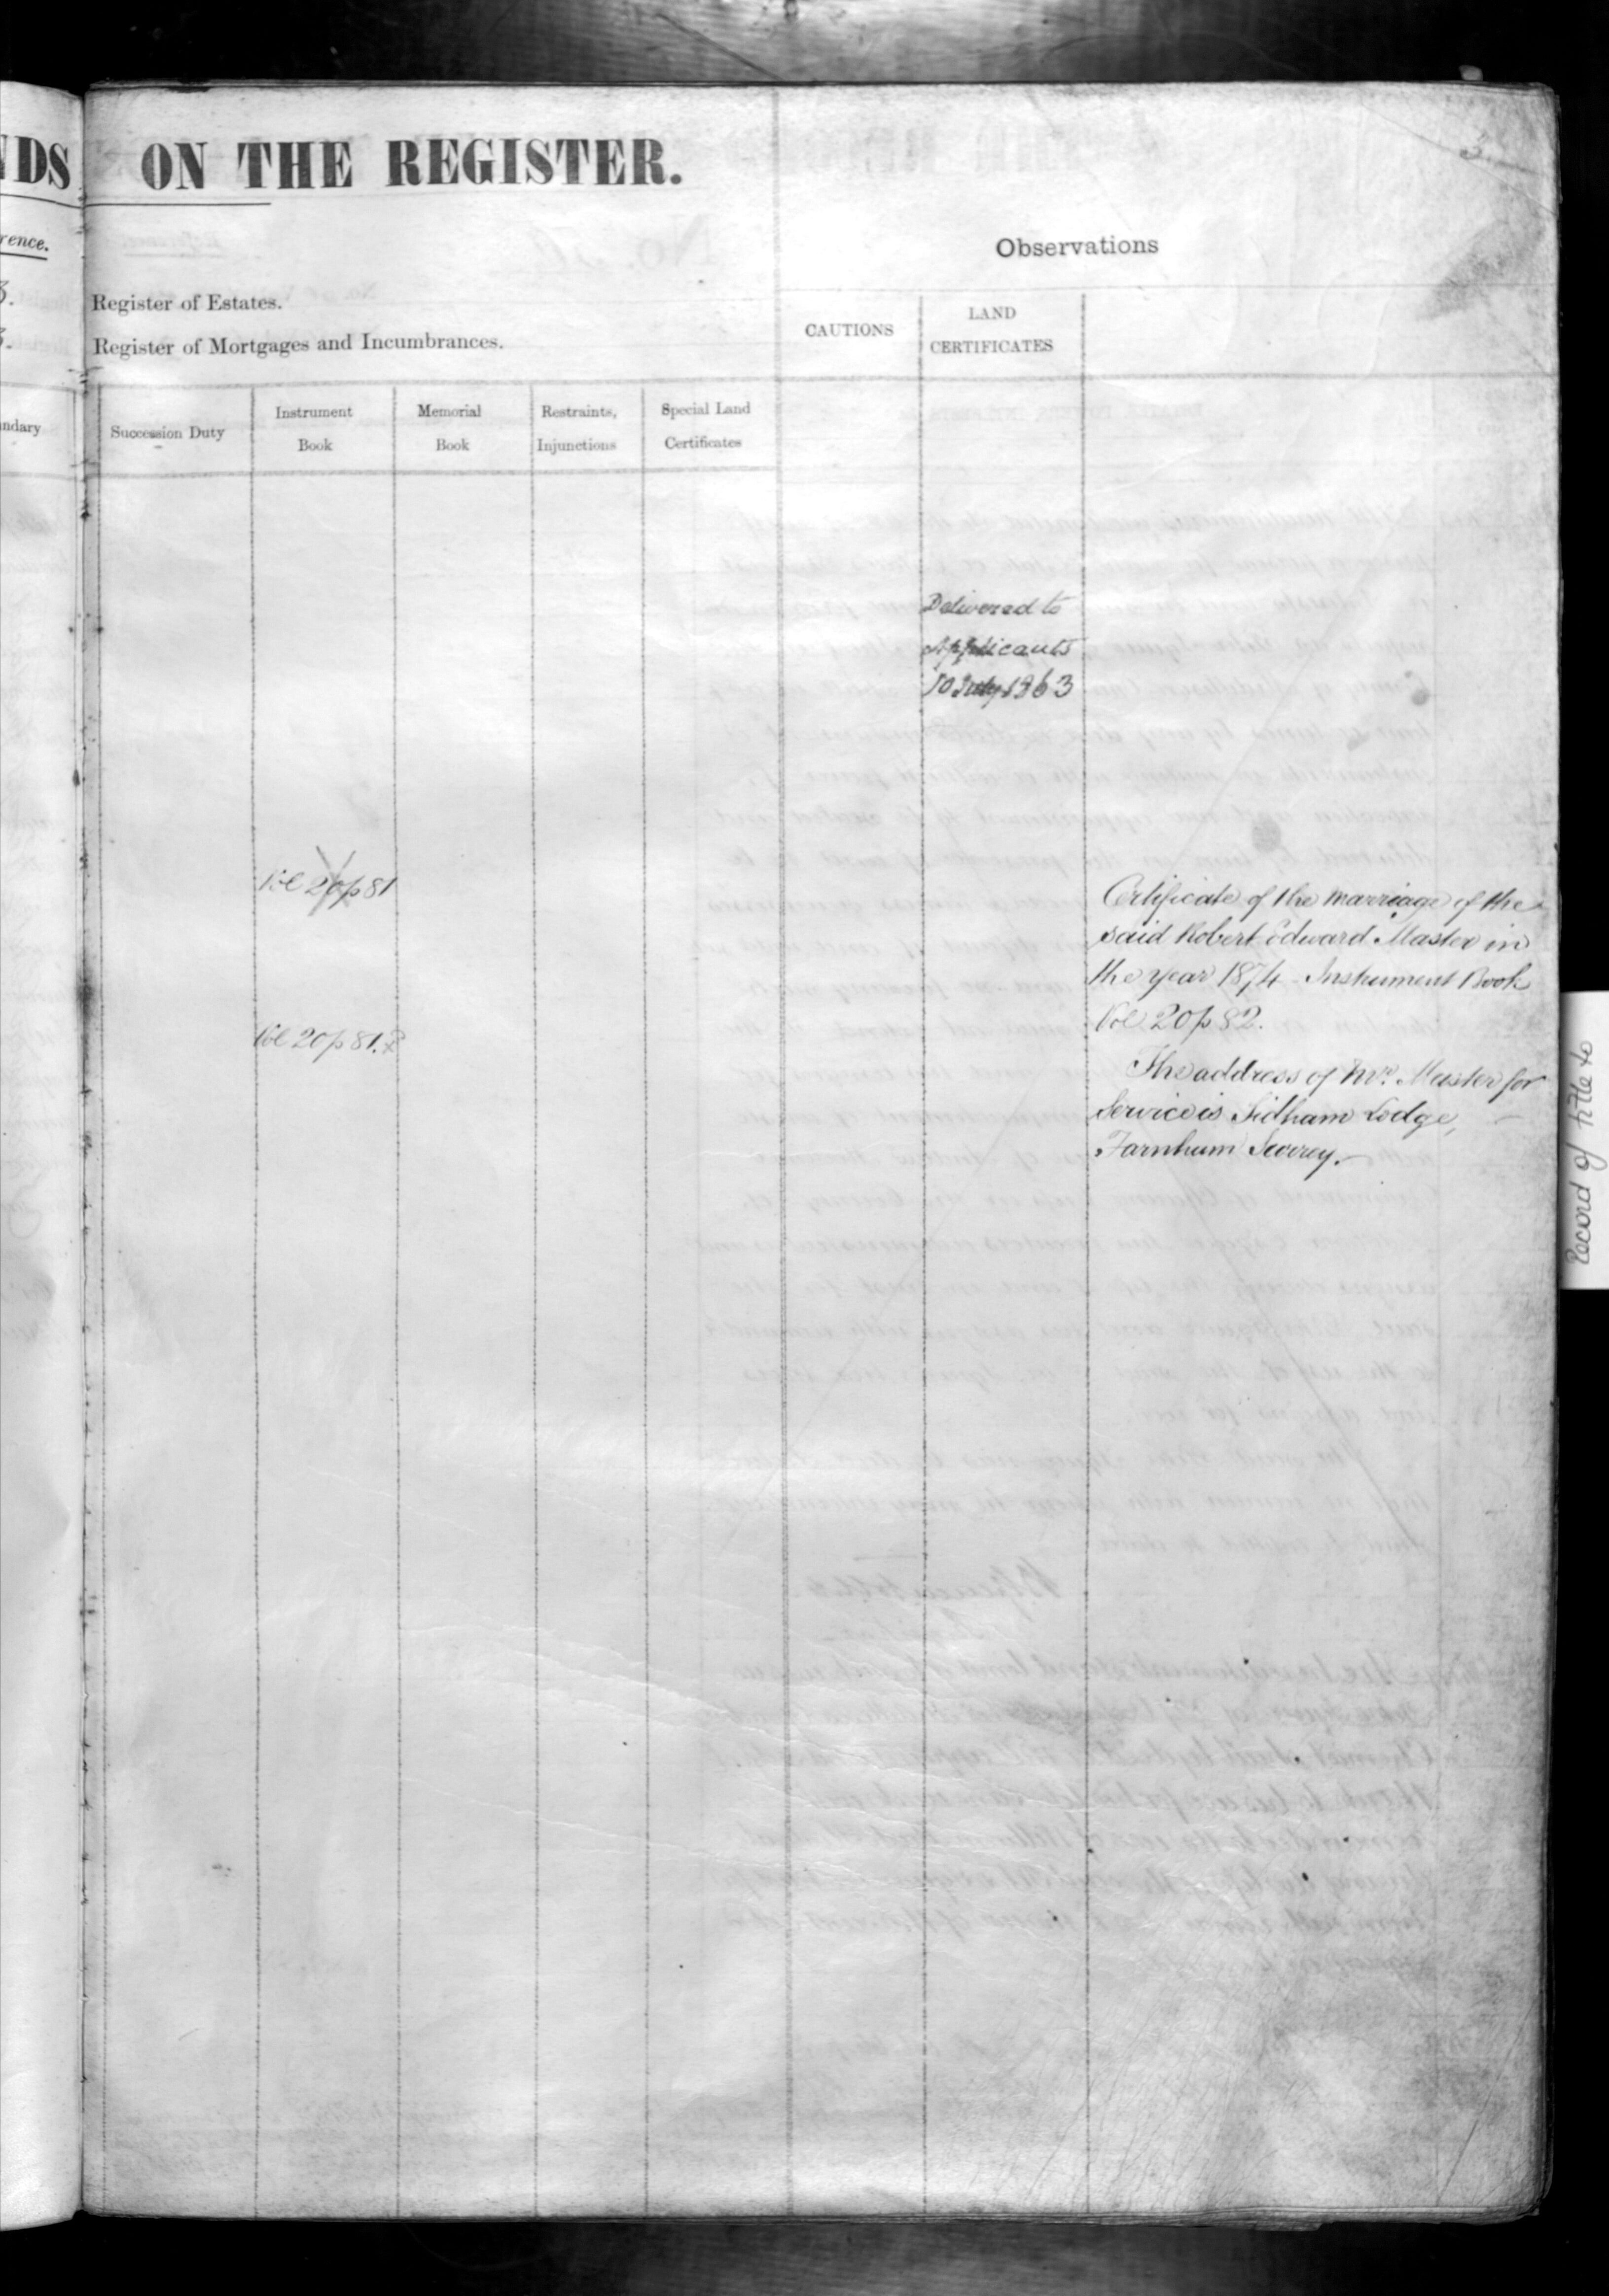 NDS ON THE REGISTER.
3
rence.
Observations
3.
Register of Estates.
3.
Register of Mortgages and Incumbrances.
CAUTIONS
LAND
CERTIFICATES
ndary
Succession Duty
Instrument
Book
Memorial
Book
Restraints,
Injunctions
Special Land
Certificates
Delivered to
Applicants
10 July 1863
Vol 20 p 81
Certificate of the marriage of the
said Robert Edward Master in
the year 1874 - Instrument Book
Vol 20 p 82.
Vol 20 p 81.
The address of Mr. Master for
Service is Lodge,
Farnham Surrey.
Record of title to